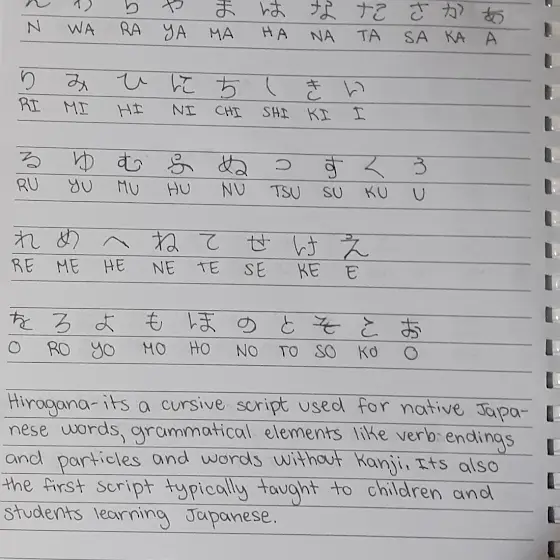 ん わ ら や ま は な た さ か あ
N WA RA YA MA HA NA TA SA KA A
り み ひ に ち し き い
RI MI HI NI CHI SHI KI I
る ゆ む ふ ぬ つ す く う
RU YU MU HU NU TSU SU KU U
れ め へ ね て せ け え
RE ME HE NE TE SE KE E
を ろ よ も ほ の と そ こ お
O RO YO MO HO NO TO SO KO O
Hiragana-its a cursive script used for native Japa-
nese words, grammatical elements like verb endings
and particles and words without Kanji. Its also
the first script typically taught to children and
students learning Japanese.